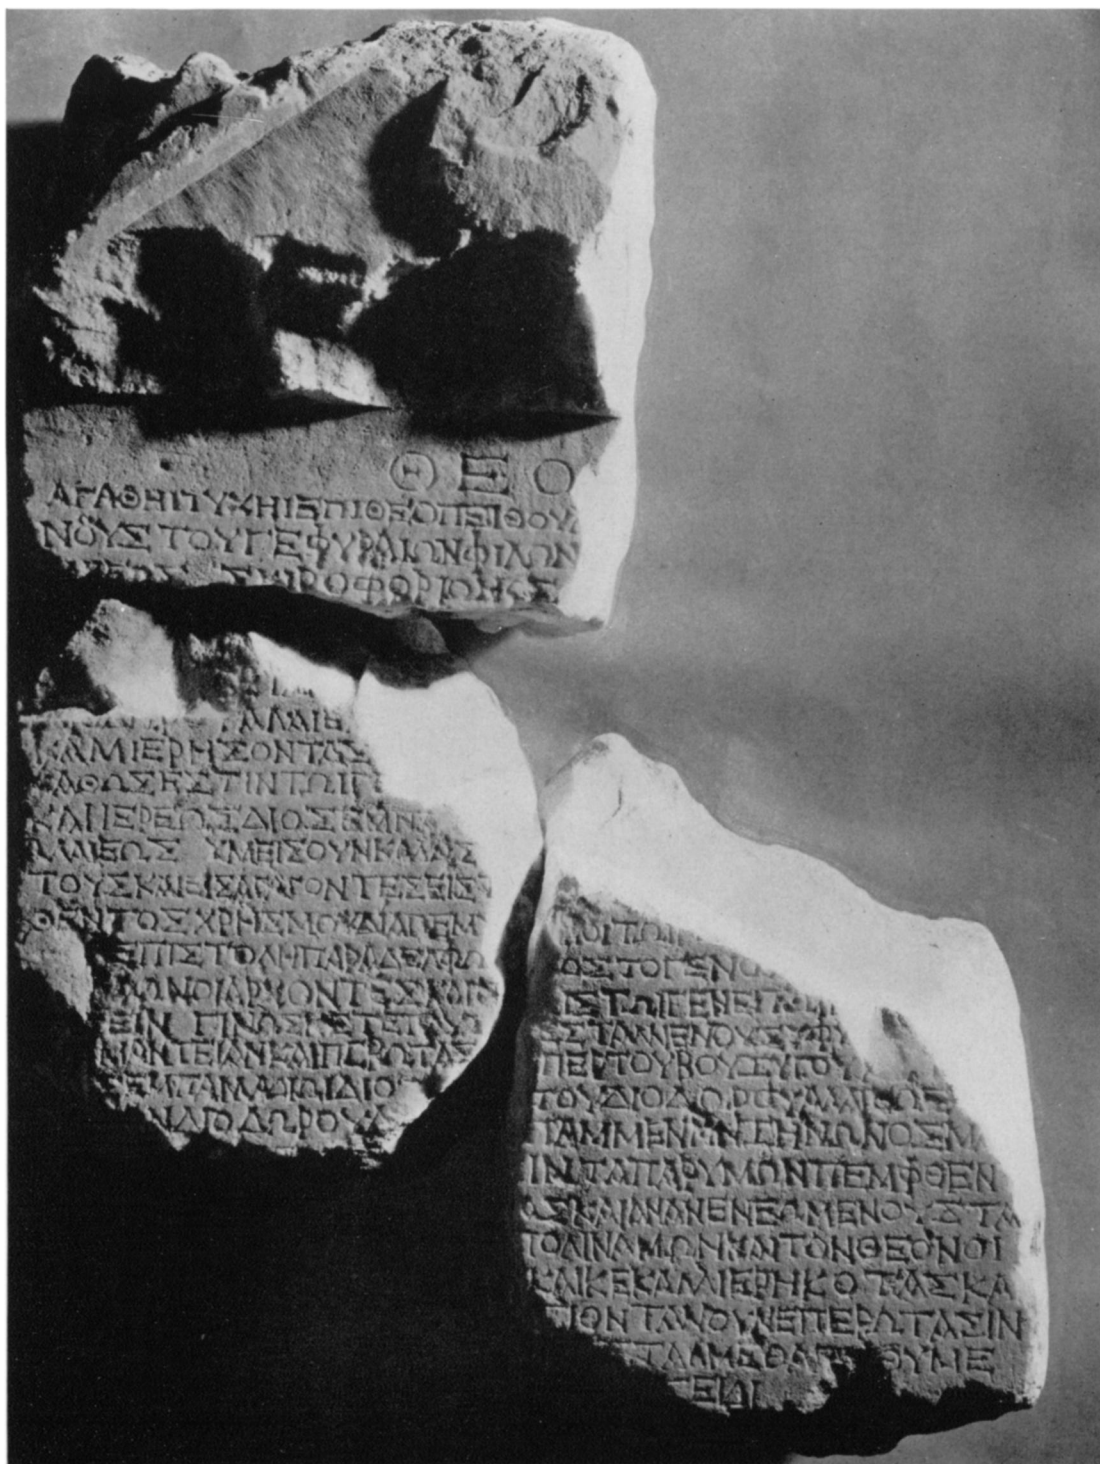 ΘΕΟ
ΑΓΑΘΗΙΤΥΧΗΙΕΠΙΘΕΟΠΕΙΘΟΥ
ΝΟΥΣΤΟΥΓΕΦΥΡΑΙΩΝΦΙΛΩΝ
ΡΟΦΟΡΙΩΝΟΣ
ΑΛΑΙΕ
ΚΑΛΛΙΕΡΗΣΟΝΤΑΣ
ΚΑΘΩΣΕΣΤΙΝΤΩΙΓ
ΚΑΙΙΕΡΕΩΣΔΙΟΣΕΜΝ
ΑΛΑΙΕΩΣ ΥΜΕΙΣΟΥΝΚΑΛΩΣ
ΤΟΥΣΚΑΙΕΙΣΑΓΑΓΟΝΤΕΣΕΙΣ
ΘΕΝΤΟΣΧΡΗΣΜΟΥΔΙΑΠΕΜ
ΕΠΙΣΤΟΛΗΠΑΡΑΔΕΛΦΩ
ΦΩΝΟΙΑΡΧΟΝΤΕΣΚΑΙ
ΕΙΝ ΓΙΝΩΣΚΕΤΕΤΑΥ
ΜΑΝΤΕΙΑΝΚΑΙΠΕΡΩΤΑΣ
ΕΜΠΑΜΜΕΝΩΙΔΙΟ
ΝΔΙΟΔΩΡΟΥΑ
ΟΙΤΩΙ
ΟΣΤΟΓΕΝΟ
ΙΣΤΩΙΓΕΝΕΙ
ΕΣΤΑΛΜΕΝΟΥΣΥΦ
ΠΕΡΤΟΥΒΟΥΖΥΓΟΥ
ΤΟΥΔΙΟΔΩΡΟΥΑΛΑΙΕΩΣ
ΠΑΜΜΕΝΩΝΖΗΝΩΝΟΣΜΑ
ΙΝΤΑΠΑΡΥΜΩΝΠΕΜΦΘΕΝ
ΑΣΚΑΙΑΝΑΝΕΝΕΩΜΕΝΟΥΣΤΑ
ΠΟΛΙΝΑΜΩΝΚΑΙΤΟΝΘΕΟΝΟΙ
ΚΑΙΚΕΚΑΛΛΙΕΡΗΚΟΤΑΣΚΑ
ΖΙΘΟΝΤΑΝΟΥΝΕΠΕΡΩΤΑΣΙΝ
ΣΤΑΛΜΕΘΑ ΘΥΜΕ